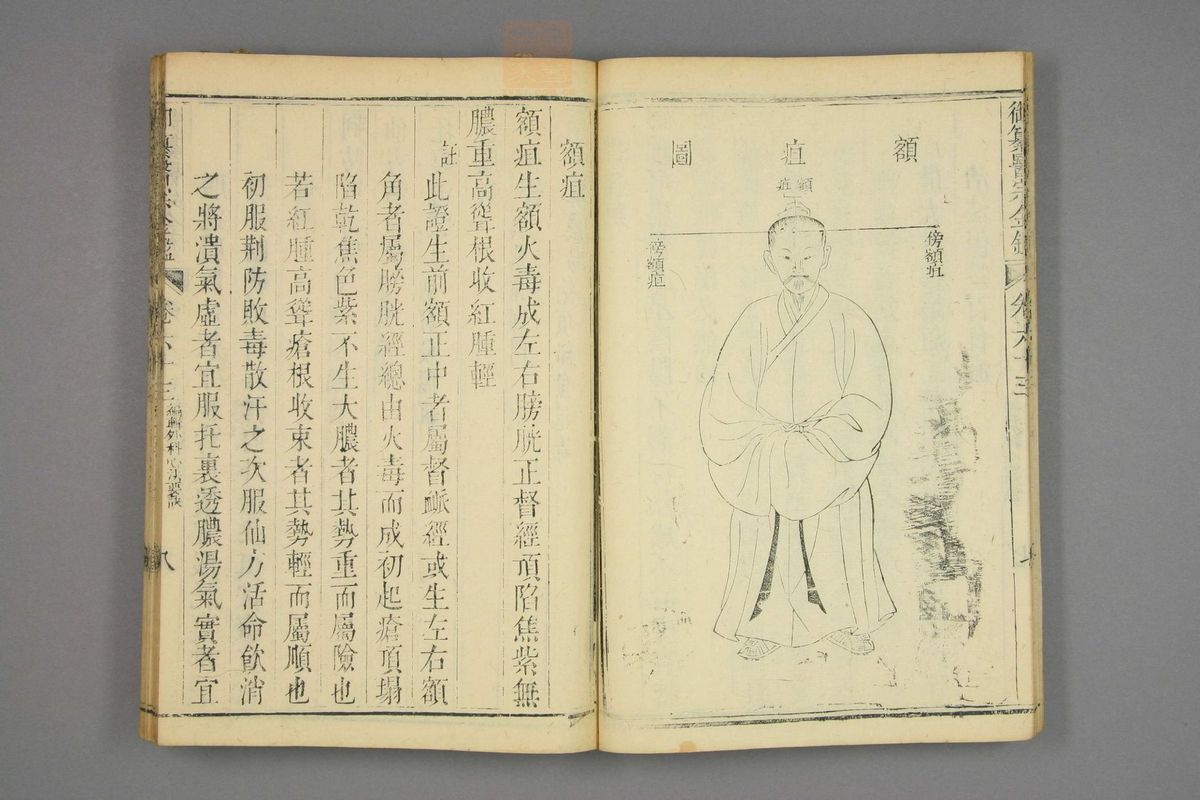 御纂醫宗金鑑
卷六十三
額疽圖
額疽
傍額疽
傍額疽
額疽
額疽生額火毒成左右膀胱正督經頂陷焦紫無
膿重高聳根收紅腫輕
註此證生前額正中者屬督脈經或生左右額
角者屬膀胱經總由火毒而成初起瘡頂塌
陷乾焦色紫不生大膿者其勢重而屬險也
若紅腫高聳瘡根收束者其勢輕而屬順也
初服荆防敗毒散汗之次服仙方活命飲消
之將潰氣虛者宜服托裏透膿湯氣實者宜
卷六十三 編輯外科心法要訣
八